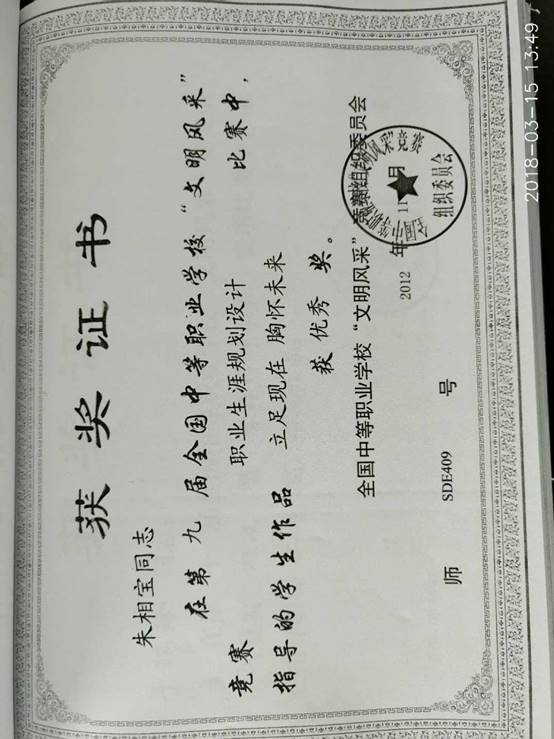 获奖证书
朱相宝同志
在第九届全国中等职业学校“文明风采”
竞赛 职业生涯规划设计 比赛中，
指导的学生作品 立足现在 胸怀未来
获 优秀 奖。
全国中等职业学校“文明风采”竞赛组织委员会
2012 年 11 月
组织委员会
师 SDE409 号
2018-03-15 13:49